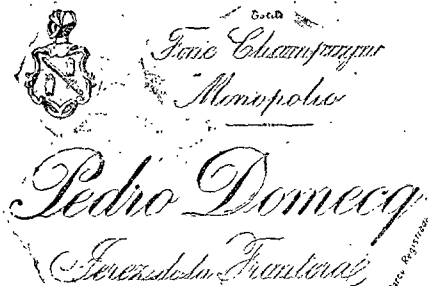 Fonic Champagne
Monopolio
Pedro Domecq
Jerez de la Frontera
Marca Registrada